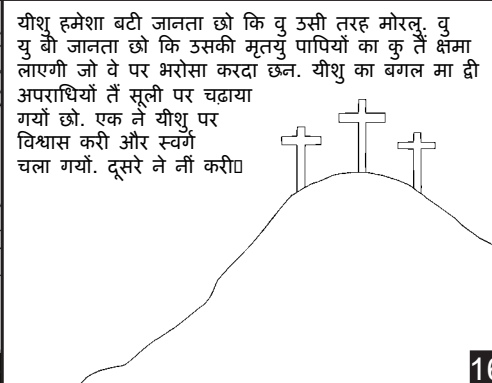 यीशु हमेशा बटी जानता छो कि वु उसी तरह मोरलु. वु
यु बी जानता छो कि उसकी मृतयु पापियों का कु तैं क्षमा
लाएगी जो वे पर भरोसा करदा छन. यीशु का बगल मा द्वी
अपराधियों तैं सूली पर चढ़ाया
गयों छो. एक ने यीशु पर
विश्वास करी और स्वर्ग
चला गयों. दूसरे ने नीं करी